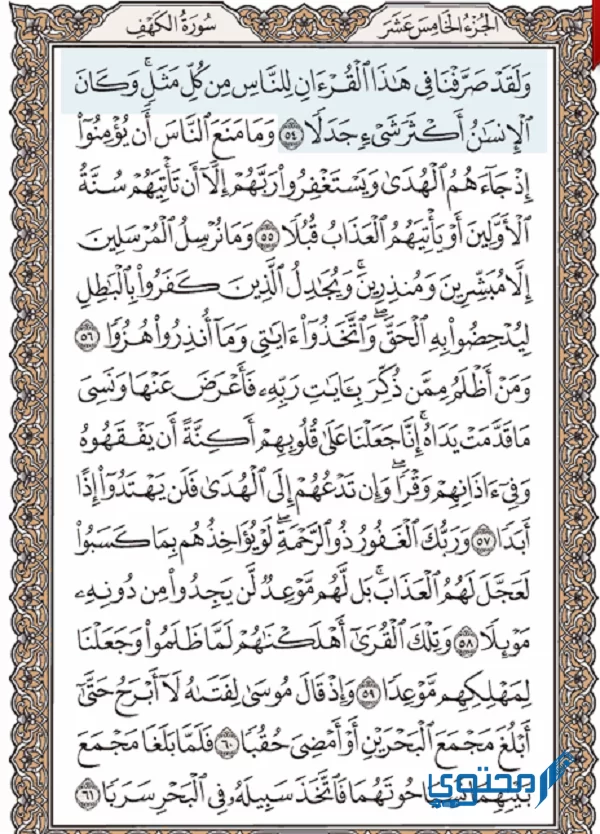 الجزء الخامس عشر
سورة الكهف
وَلَقَدْ صَرَّفْنَا فِي هَٰذَا ٱلْقُرْءَانِ لِلنَّاسِ مِن كُلِّ مَثَلٍ ۚ وَكَانَ
ٱلْإِنسَٰنُ أَكْثَرَ شَىْءٍ جَدَلًا ٥٤ وَمَا مَنَعَ ٱلنَّاسَ أَن يُؤْمِنُوٓا۟
إِذْ جَآءَهُمُ ٱلْهُدَىٰ وَيَسْتَغْفِرُوا۟ رَبَّهُمْ إِلَّآ أَن تَأْتِيَهُمْ سُنَّةُ
ٱلْأَوَّلِينَ أَوْ يَأْتِيَهُمُ ٱلْعَذَابُ قُبُلًا ٥٥ وَمَا نُرْسِلُ ٱلْمُرْسَلِينَ
إِلَّا مُبَشِّرِينَ وَمُنذِرِينَ ۚ وَيُجَٰدِلُ ٱلَّذِينَ كَفَرُوا۟ بِٱلْبَٰطِلِ
لِيُدْحِضُوا۟ بِهِ ٱلْحَقَّ ۖ وَٱتَّخَذُوٓا۟ ءَايَٰتِى وَمَآ أُنذِرُوا۟ هُزُوًا ٥٦
وَمَنْ أَظْلَمُ مِمَّن ذُكِّرَ بِـَٔايَٰتِ رَبِّهِۦ فَأَعْرَضَ عَنْهَا وَنَسِىَ
مَا قَدَّمَتْ يَدَاهُ ۚ إِنَّا جَعَلْنَا عَلَىٰ قُلُوبِهِمْ أَكِنَّةً أَن يَفْقَهُوهُ
وَفِىٓ ءَاذَانِهِمْ وَقْرًا ۖ وَإِن تَدْعُهُمْ إِلَى ٱلْهُدَىٰ فَلَن يَهْتَدُوٓا۟ إِذًا
أَبَدًا ٥٧ وَرَبُّكَ ٱلْغَفُورُ ذُو ٱلرَّحْمَةِ ۖ لَوْ يُؤَاخِذُهُم بِمَا كَسَبُوا۟
لَعَجَّلَ لَهُمُ ٱلْعَذَابَ ۚ بَل لَّهُم مَّوْعِدٌ لَّن يَجِدُوا۟ مِن دُونِهِۦ
مَوْئِلًا ٥٨ وَتِلْكَ ٱلْقُرَىٰٓ أَهْلَكْنَٰهُمْ لَمَّا ظَلَمُوا۟ وَجَعَلْنَا
لِمَهْلِكِهِم مَّوْعِدًا ٥٩ وَإِذْ قَالَ مُوسَىٰ لِفَتَىٰهُ لَآ أَبْرَحُ حَتَّىٰٓ
أَبْلُغَ مَجْمَعَ ٱلْبَحْرَيْنِ أَوْ أَمْضِىَ حُقُبًا ٦٠ فَلَمَّا بَلَغَا مَجْمَعَ
بَيْنِهِمَا نَسِيَا حُوتَهُمَا فَٱتَّخَذَ سَبِيلَهُۥ فِى ٱلْبَحْرِ سَرَبًا ٦١
محتوى